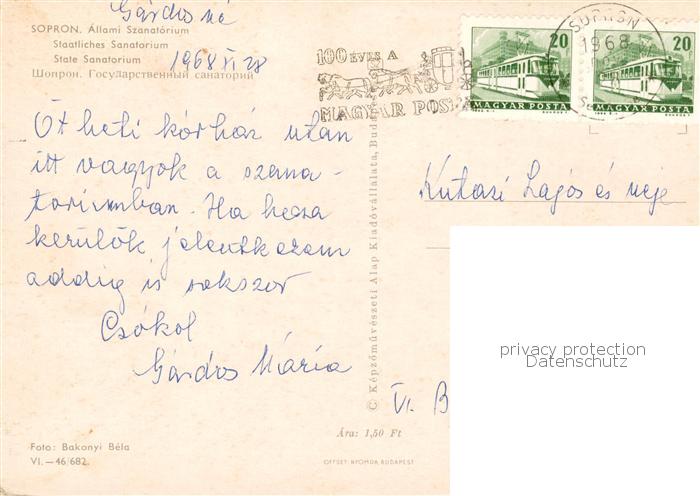 Gárdos né
SOPRON. Állami Szanatórium
Staatliches Sanatorium
State Sanatorium
Шопрон. Государственный санаторий
1968 XI 28
Öt heti kórház utan
itt vagyok a szana-
toriumban. Ha haza
kerülök jelentkezem
addig is sokszor
Csókol
Gárdos Mária
Foto: Bakonyi Béla
VI.—46/682.
100 ÉVES A
MAGYAR POSTA
SOPRON
1968
20
MAGYAR POSTA
20
MAGYAR POSTA
© Képzőművészeti Alap Kiadóvállalata, Budapest
Kutasi Lajos és neje
VI. B
privacy protection
Datenschutz
Ára: 1,50 Ft
OFFSET-NYOMDA BUDAPEST